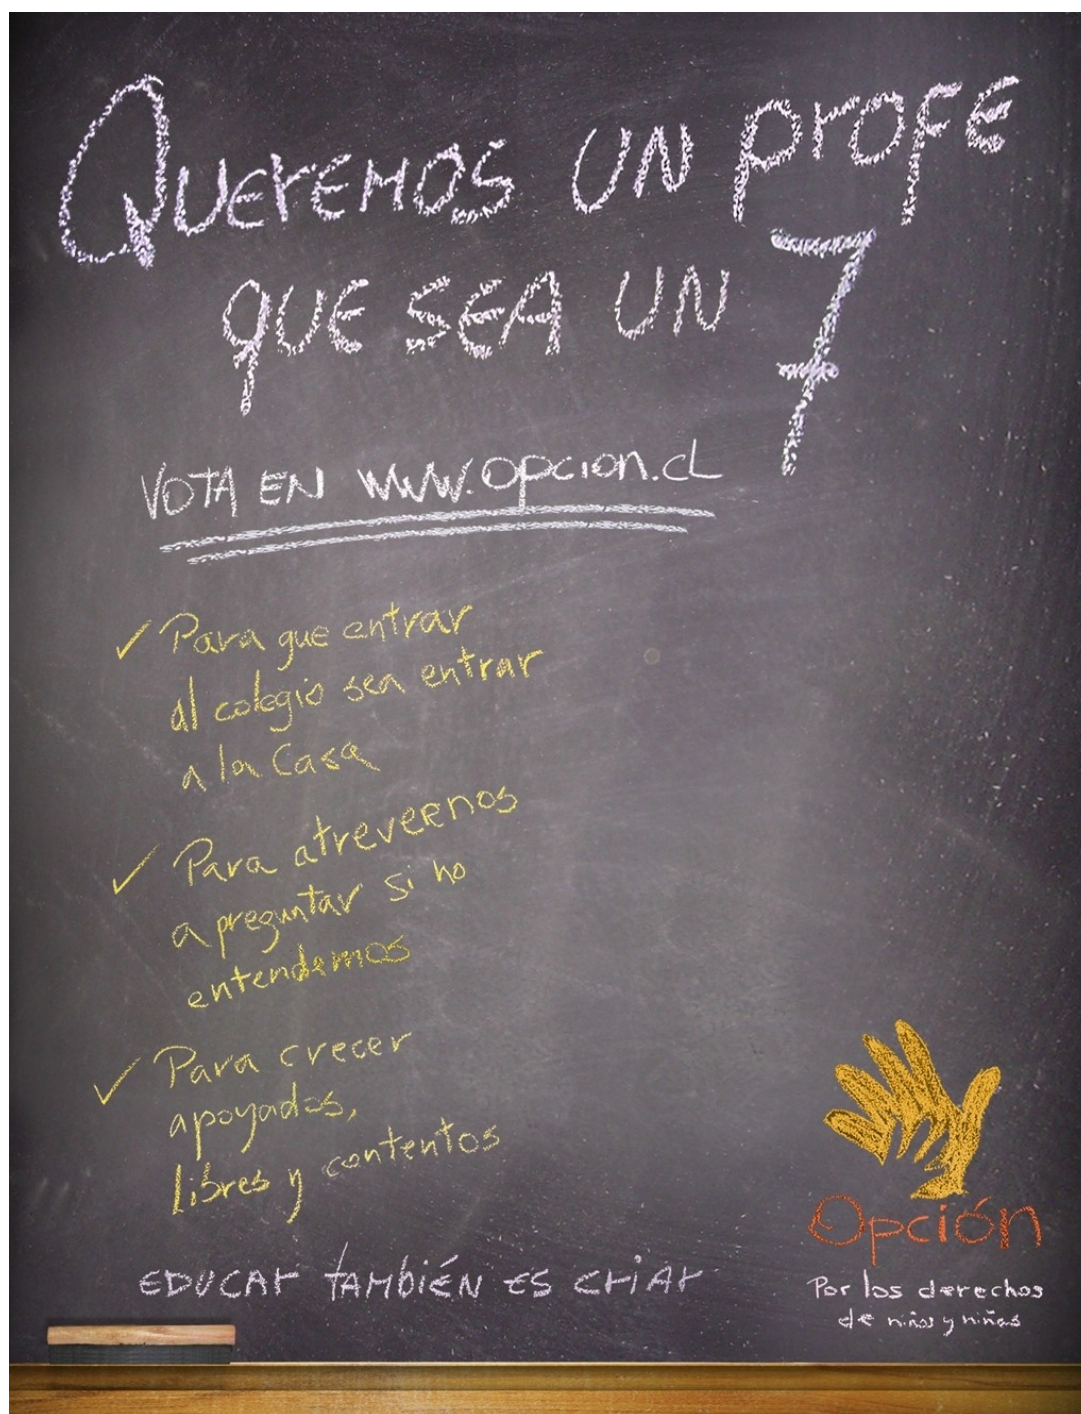 Queremos un profe
que sea un 7
Vota en www.opcion.cl
✓ Para que entrar
al colegio sea entrar
a la Casa
✓ Para atrevernos
a preguntar si no
entendemos
✓ Para crecer
apoyados,
libres y contentos
Educar también es criar
Opción
Por los derechos
de niños y niñas